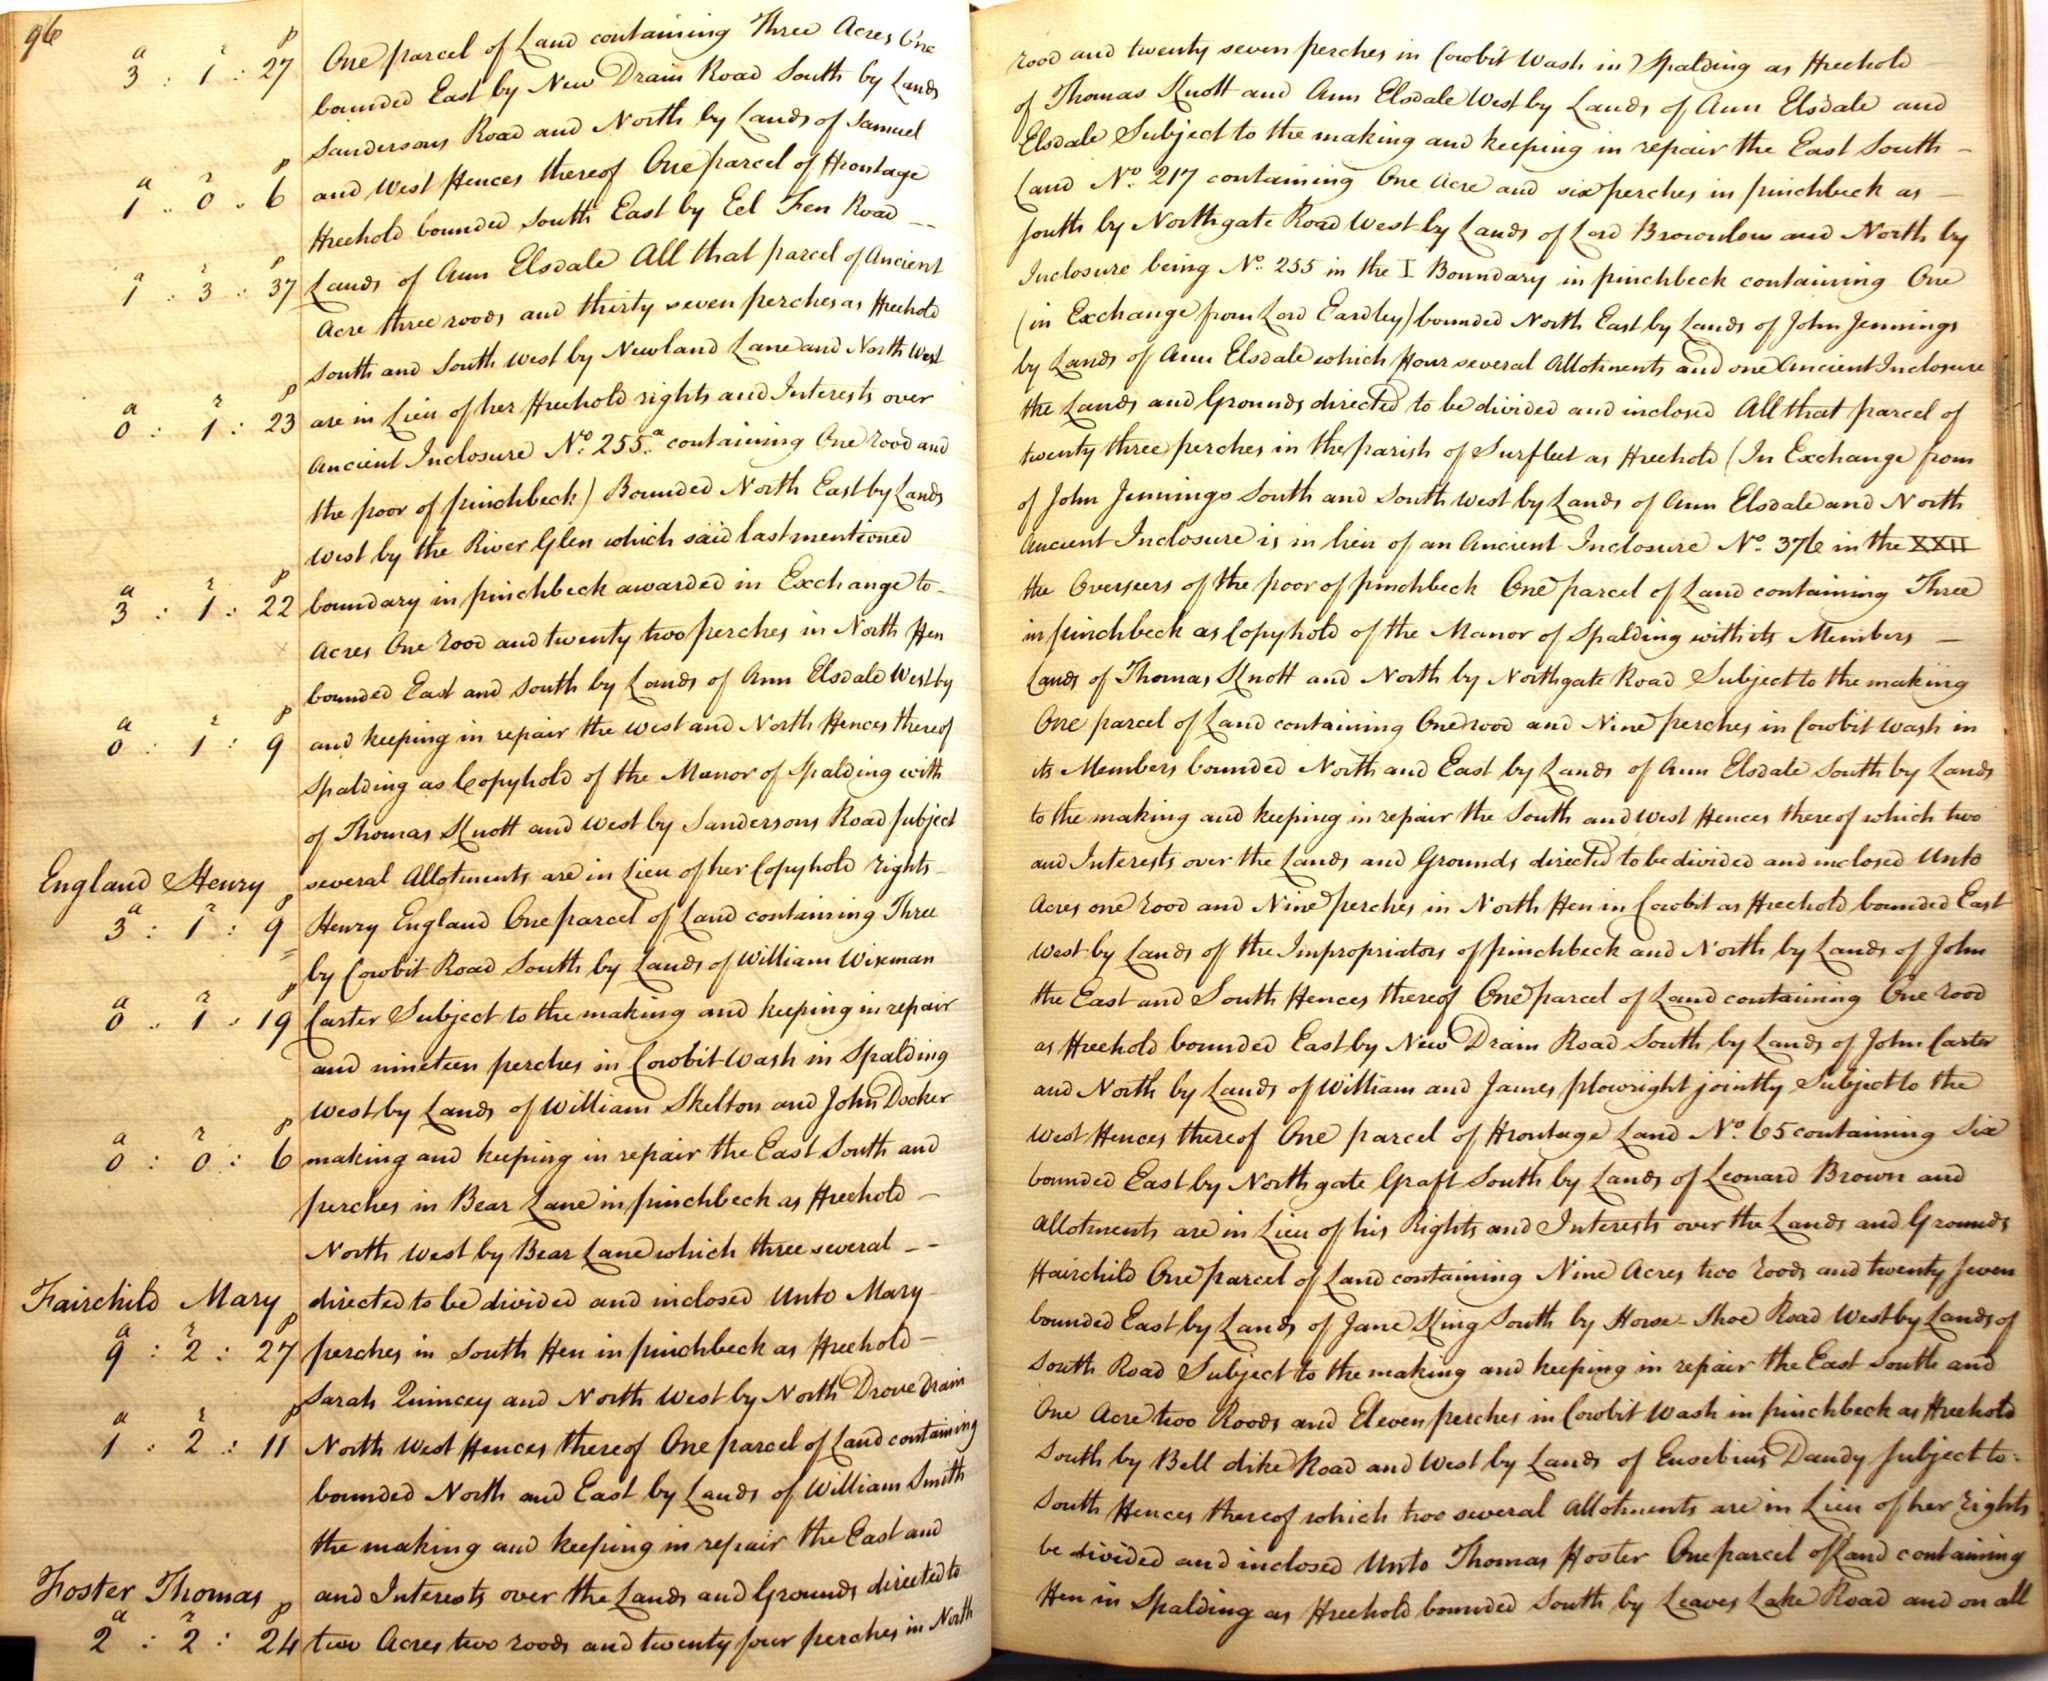 96
a r p
3 : 1 : 27 One parcel of Land containing Three Acres One rood and twenty seven perches in Cowbit Wash in Spalding as Freehold
bounded East by New Drain Road South by Lands of Thomas Knott and Ann Elsdale West by Lands of Ann Elsdale and
Sandersons Road and North by Lands of Samuel Elsdale Subject to the making and keeping in repair the East South
a r p
1 : 0 : 6 and West Fences thereof One parcel of Frontage Land No. 217 containing One Acre and six perches in pinchbeck as
Freehold bounded South East by Eel Fen Road South by Northgate Road West by Lands of Lord Brownlow and North by
a r p
1 : 3 : 37 Lands of Ann Elsdale All that parcel of Ancient Inclosure being No. 255 in the I Boundary in pinchbeck containing One
Acre three roods and thirty seven perches as Freehold (in Exchange from Lord Eardley) bounded North East by Lands of John Jennings
South and South West by Newland Lane and North West by Lands of Ann Elsdale which Four several Allotments and one Ancient Inclosure
a r p
0 : 1 : 23 are in Lieu of her Freehold rights and Interests over the Lands and Grounds directed to be divided and inclosed All that parcel of
Ancient Inclosure No. 255a containing One rood and twenty three perches in the parish of Surfleet as Freehold (In Exchange from
the poor of pinchbeck) Bounded North East by Lands of John Jennings South and South West by Lands of Ann Elsdale and North
West by the River Glen which said last mentioned Ancient Inclosure is in lieu of an Ancient Inclosure No. 376 in the XXII
a r p
3 : 1 : 22 boundary in pinchbeck awarded in Exchange to the Overseers of the poor of pinchbeck One parcel of Land containing Three
Acres One rood and twenty two perches in North Fen in pinchbeck as Copyhold of the Manor of Spalding with its Members
bounded East and South by Lands of Ann Elsdale West by Lands of Thomas Knott and North by Northgate Road Subject to the making
a r p
0 : 1 : 9 and keeping in repair the West and North Fences thereof One parcel of Land containing One rood and Nine perches in Cowbit Wash in
Spalding as Copyhold of the Manor of Spalding with its Members bounded North and East by Lands of Ann Elsdale South by Lands
of Thomas Knott and West by Sandersons Road Subject to the making and keeping in repair the South and West Fences thereof which two
several Allotments are in Lieu of her Copyhold rights and Interests over the Lands and Grounds directed to be divided and inclosed Unto
England Henry
a r p
3 : 1 : 9 Henry England One parcel of Land containing Three Acres one rood and Nine perches in North Fen in Cowbit as Freehold bounded East
by Cowbit Road South by Lands of William Wixman West by Lands of the Impropriators of pinchbeck and North by Lands of John
a r p
0 : 1 : 19 Carter Subject to the making and keeping in repair the East and South Fences thereof One parcel of Land containing One rood
and nineteen perches in Cowbit Wash in Spalding as Freehold bounded East by New Drain Road South by Lands of John Carter
West by Lands of William Skelton and John Docker and North by Lands of William and James plowright jointly Subject to the
a r p
0 : 0 : 6 making and keeping in repair the East South and West Fences thereof One parcel of Frontage Land No. 65 containing Six
perches in Bear Lane in pinchbeck as Freehold bounded East by Northgate Graft South by Lands of Leonard Brown and
North West by Bear Lane which three several Allotments are in Lieu of his Rights and Interests over the Lands and Grounds
Fairchild Mary directed to be divided and inclosed Unto Mary Fairchild One parcel of Land containing Nine Acres two roods and twenty seven
a r p
9 : 2 : 27 perches in South Fen in pinchbeck as Freehold bounded East by Lands of Jane King South by Horse-Shoe Road West by Lands of
Sarah Quincey and North West by North Drove Drain South Road Subject to the making and keeping in repair the East South and
a r p
1 : 2 : 11 North West Fences thereof One parcel of Land containing One Acre two Roods and Eleven perches in Cowbit Wash in pinchbeck as Freehold
bounded North and East by Lands of William Smith South by Bell dike Road and West by Lands of Eusebius Dandy Subject to
the making and keeping in repair the East and South Fences thereof which two several Allotments are in Lieu of her rights
Foster Thomas and Interests over the Lands and Grounds directed to be divided and inclosed Unto Thomas Foster One parcel of Land containing
a r p
2 : 2 : 24 two Acres two roods and twenty four perches in North Fen in Spalding as Freehold bounded South by Leaves Lake Road and on all